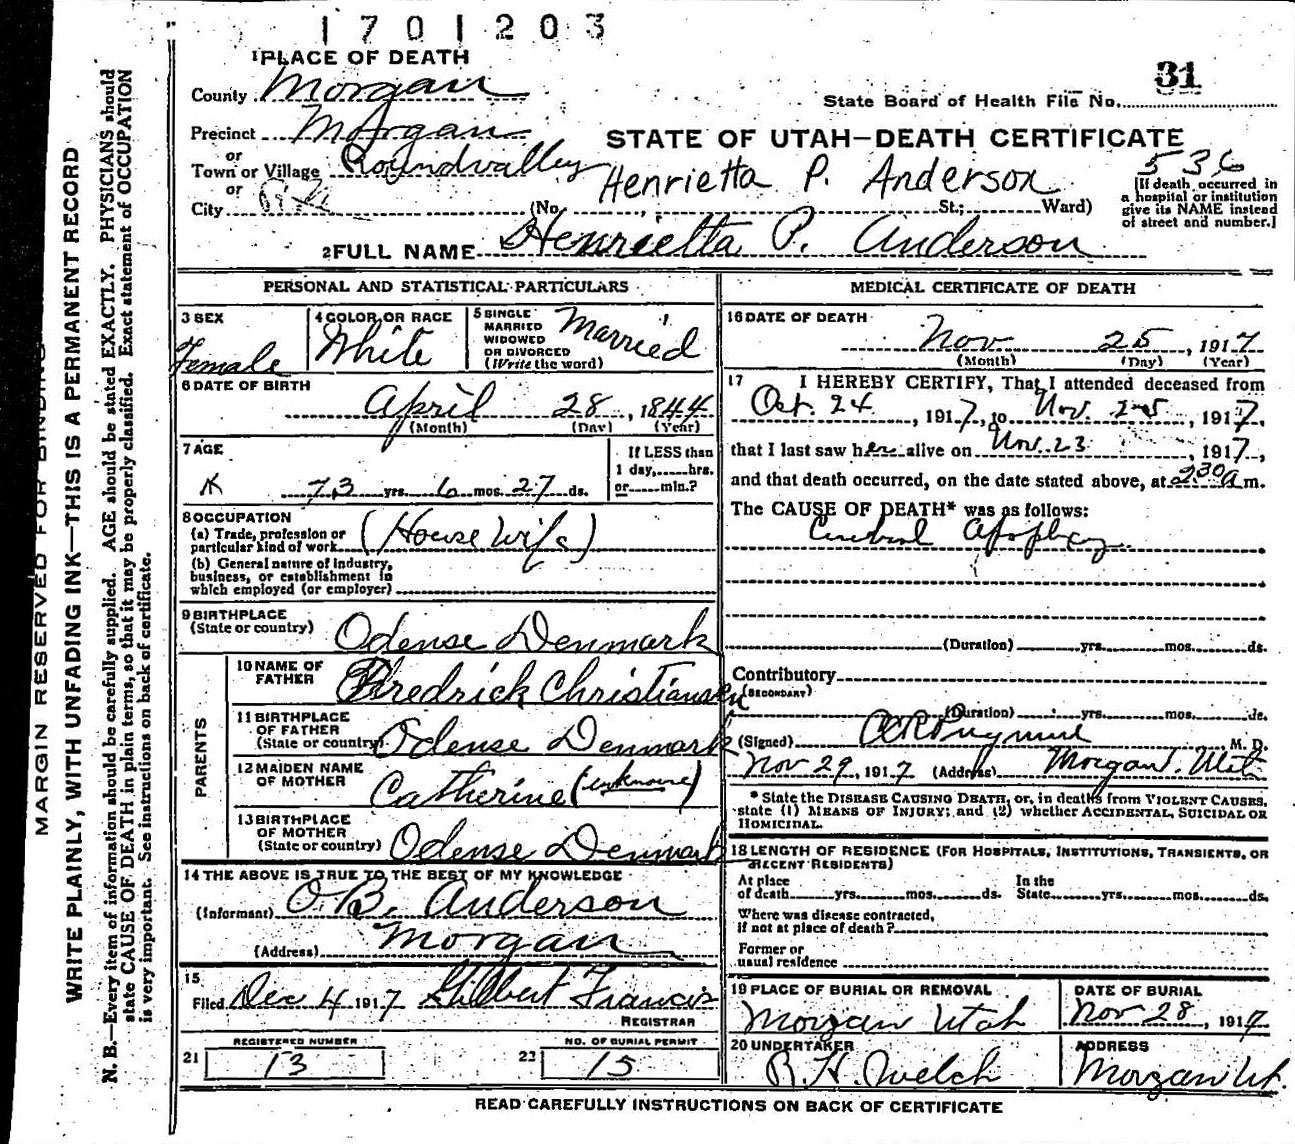 1701203
1 PLACE OF DEATH
County Morgan
Precinct Morgan
or
Town or Village Roundvalley
or
City
31
State Board of Health File No.
STATE OF UTAH—DEATH CERTIFICATE
536
Henrietta P. Anderson
(No. St.; Ward)
[If death occurred in
a hospital or institution
give its NAME instead
of street and number.]
2 FULL NAME Henrietta P. Anderson
PERSONAL AND STATISTICAL PARTICULARS
3 SEX
Female
4 COLOR OR RACE
White
5 SINGLE
MARRIED
WIDOWED
OR DIVORCED
(Write the word)
Married
6 DATE OF BIRTH
April 28, 1844
(Month) (Day) (Year)
7 AGE
73 yrs. 6 mos. 27 ds.
If LESS than
1 day, hrs.
or min.?
8 OCCUPATION
(a) Trade, profession or
particular kind of work (House Wife)
(b) General nature of industry,
business, or establishment in
which employed (or employer)
9 BIRTHPLACE
(State or country) Odense Denmark
PARENTS
10 NAME OF
FATHER Fredrick Christiansen
11 BIRTHPLACE
OF FATHER
(State or country) Odense Denmark
12 MAIDEN NAME
OF MOTHER Catherine (unknown)
13 BIRTHPLACE
OF MOTHER
(State or country) Odense Denmark
14 THE ABOVE IS TRUE TO THE BEST OF MY KNOWLEDGE
(Informant) O. B. Anderson
(Address) Morgan
15
Filed Dec 4 1917 Gilbert Francis
REGISTRAR
REGISTERED NUMBER
21 13
NO. OF BURIAL PERMIT
22 15
MEDICAL CERTIFICATE OF DEATH
16 DATE OF DEATH
Nov 25, 1917
(Month) (Day) (Year)
17 I HEREBY CERTIFY, That I attended deceased from
Oct. 24, 1917, to Nov. 25, 1917,
that I last saw her alive on Nov. 23, 1917,
and that death occurred, on the date stated above, at 2 30 a m.
The CAUSE OF DEATH* was as follows:
Cerebral Apoplexy
(Duration) yrs. mos. ds.
Contributory
(SECONDARY)
(Duration) yrs. mos. ds.
(Signed) M. D.
Nov 29, 1917 (Address) Morgan. Utah
* State the DISEASE CAUSING DEATH, or, in deaths from VIOLENT CAUSES,
state (1) MEANS OF INJURY; and (2) whether ACCIDENTAL, SUICIDAL OR
HOMICIDAL.
18 LENGTH OF RESIDENCE (FOR HOSPITALS, INSTITUTIONS, TRANSIENTS, OR
RECENT RESIDENTS)
At place
of death yrs. mos. ds.
In the
State yrs. mos. ds.
Where was disease contracted,
if not at place of death?
Former or
usual residence
19 PLACE OF BURIAL OR REMOVAL
Morgan Utah
DATE OF BURIAL
Nov 28, 1917
20 UNDERTAKER
R. H. Welch
ADDRESS
Morgan Ut.
READ CAREFULLY INSTRUCTIONS ON BACK OF CERTIFICATE
MARGIN RESERVED FOR BINDING
WRITE PLAINLY, WITH UNFADING INK—THIS IS A PERMANENT RECORD
N. B.—Every item of information should be carefully supplied. AGE should be stated EXACTLY. PHYSICIANS should
state CAUSE OF DEATH in plain terms, so that it may be properly classified. Exact statement of OCCUPATION
is very important. See instructions on back of certificate.